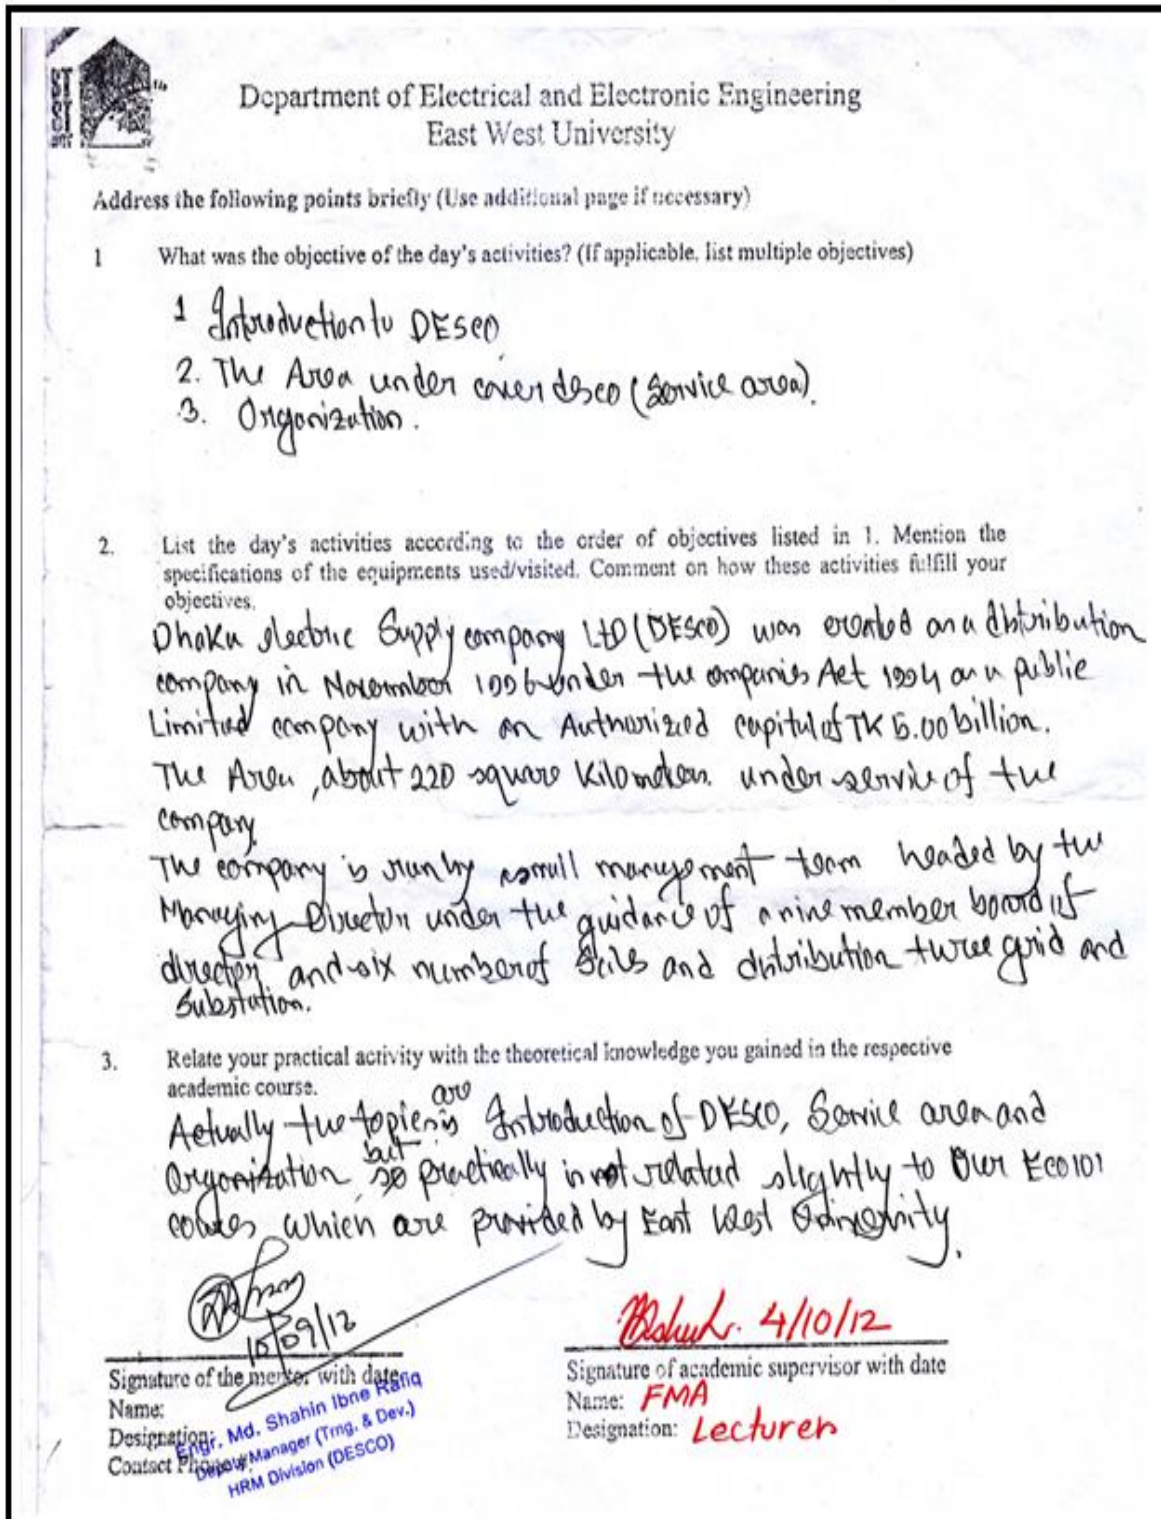 Department of Electrical and Electronic Engineering
East West University
Address the following points briefly (Use additional page if necessary)
1 What was the objective of the day's activities? (If applicable, list multiple objectives)
1 Introduction to DESCO
2. The Area under cover desco (Service area).
3. Organization.
2. List the day's activities according to the order of objectives listed in 1. Mention the
specifications of the equipments used/visited. Comment on how these activities fulfill your
objectives.
Dhaka electric Supply company LTD (DESCO) was created as a distribution
company in November 1996 under the companies Act 1994 as a public
Limited company with an Authorized capital of TK 5.00 billion.
The Area, about 220 square Kilometers. under service of the
company.
The company is run by a small management team headed by the
Managing Director under the guidance of a nine member board of
director, and six number of and distribution three grid and
Substation.
3. Relate your practical activity with the theoretical knowledge you gained in the respective
academic course.
are
Actually the topic is Introduction of DESCO, Service area and
but
Organization, so practically is not related slightly to Our Eco101
which are provided by East West University.
10/09/12
4/10/12
Signature of the mentor with date
Signature of academic supervisor with date
Name:
Name: FMA
Designation:
Designation: Lecturer
Contact Phone
Engr. Md. Shahin Ibne Rafiq
Deputy Manager (Trng. & Dev.)
HRM Division (DESCO)